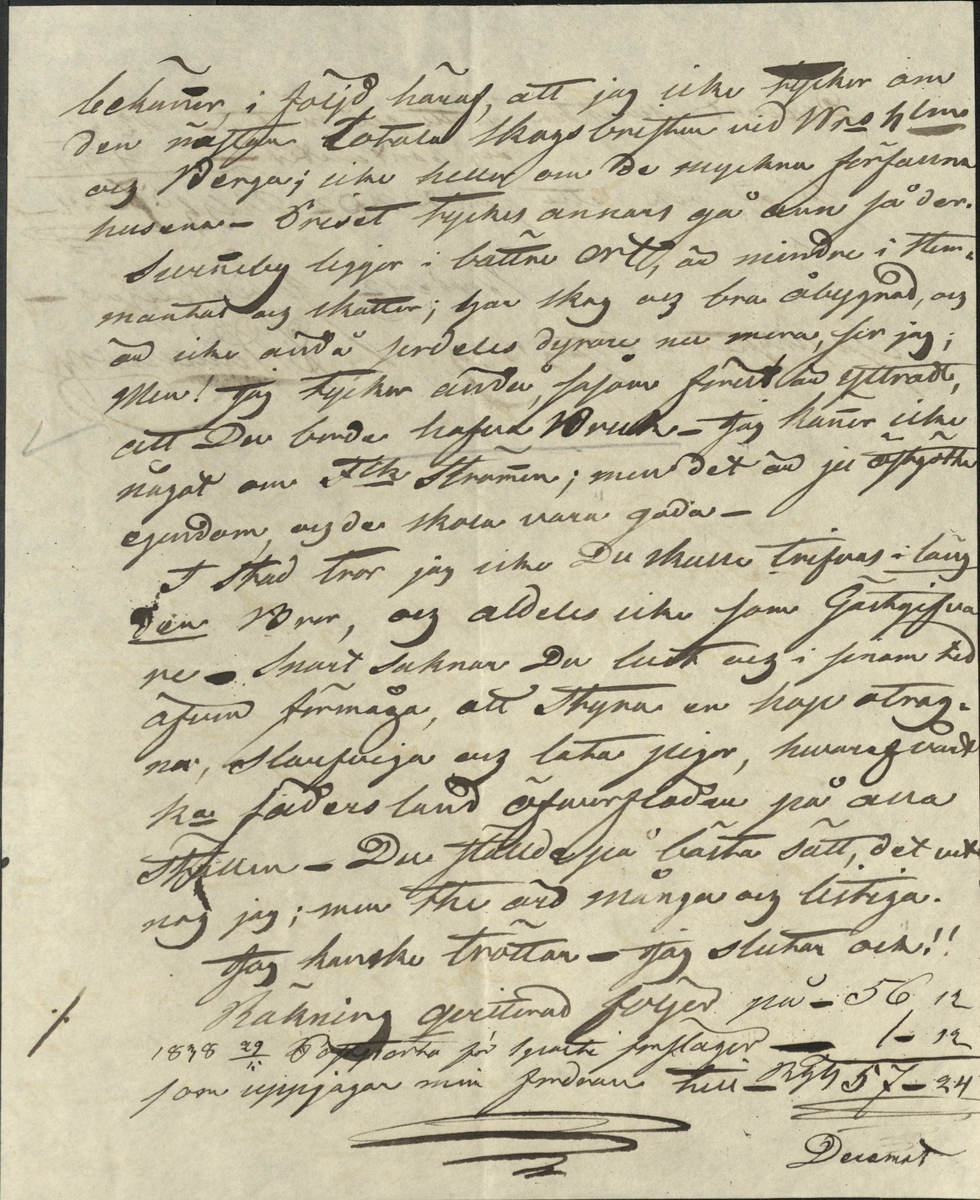 bekänner, i följd häraf, att jag icke tycker om
den nästan totala skogsbristen vid
och Berga; icke heller om de myckna förfallna
husena — Priset tyckes annars gå ann så der.
Sörneby ligger i bättre ort, är mindre i Hem-
mantal och skatter; har skog och bra åbygnad, och
är icke ändå serdeles dyrare nu mera, ser jag;
Men! jag tycker ändå, såsom förut är yttradt,
att Du borde hafva Bruk — Jag känner icke
något om Strömmen; men det är ju
egendom, och de skola vara goda —
I Stad tror jag icke Du skulle trifvas i läng
den Bror, och aldeles icke som Gästgifva
re — Snart saknar Du lust och i senare tid
äfven förmåga, att styra en hop otrog-
na, slarfviga och lata pigor, hvaraf vårt
kra fädersland öfverflödar på alla
Ställen — Du städde på bästa sätt, det vet
nog jag; men the äro många och listiga.
Jag kanske tröttar — Jag slutar ock!!
Räkning qvitterad följer på — 56 12
1838 för forslager — 1 — 12
som uppjagar min fordran till — Rgs 57 — 24